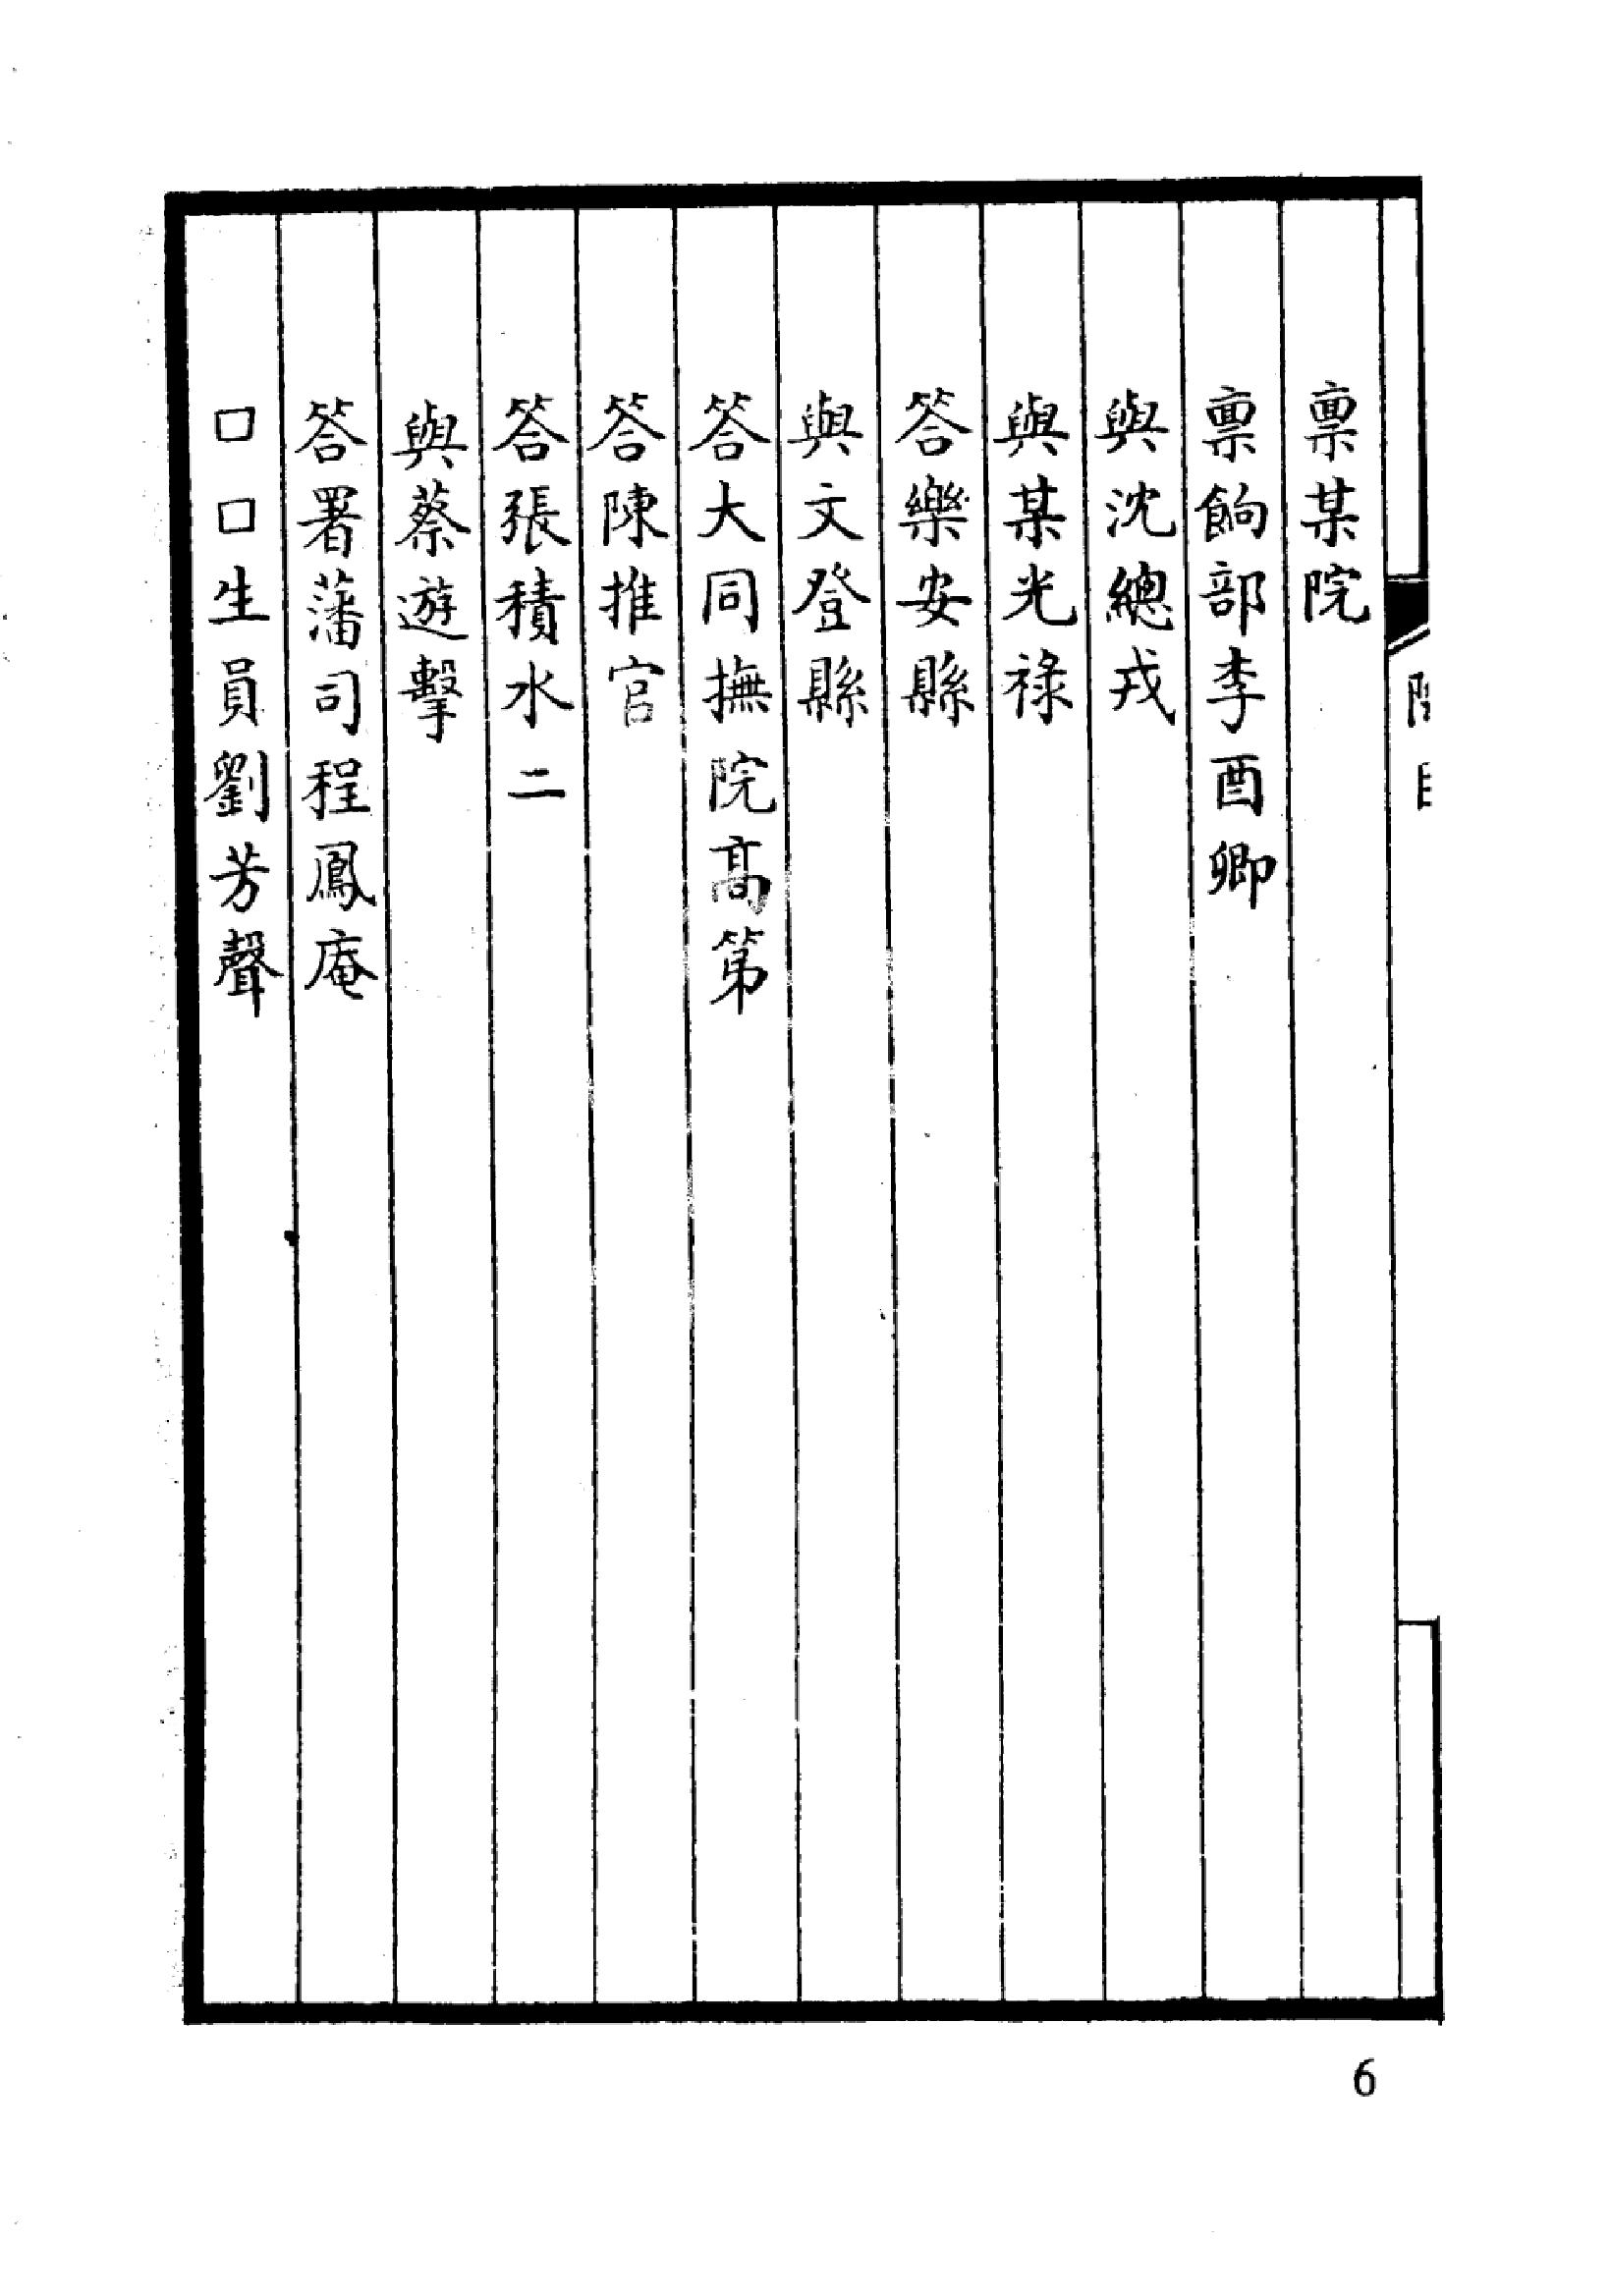 稟某院
稟餉部李酉卿
與沈總戎
與某光祿
答樂安縣
與文登縣
答大同撫院高第
答陳推官
答張積水二
與蔡遊擊
答署藩司程鳳庵
□□生員劉芳聲
6